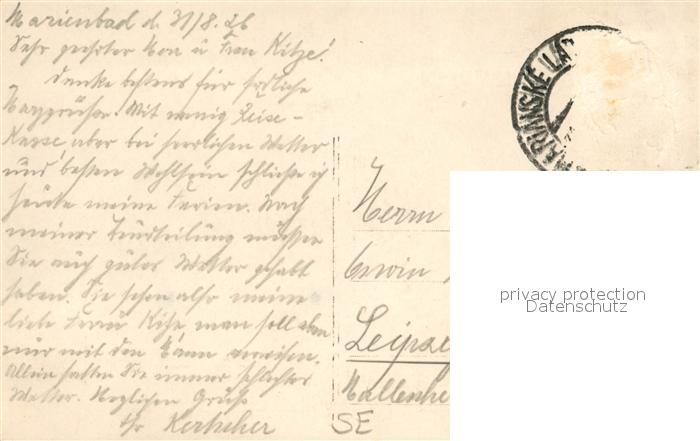 Marienbad d. 31/8. 26
Sehr geehrter Herr u Frau Kitze!
Danke bestens für freundliche
Harzgrüße. Mit wenig Reise-
Kasse, aber bei herrlichen Wetter
und besten Wohlsein schließe ich
heute meine Ferien. Nach
meiner Beurteilung müssen
Sie auch gutes Wetter gehabt
haben. Sie sehen also meine
liebe Frau Kitze, man soll eben
nur mit den Mann verreisen.
Allein hatten Sie immer schlechtes
Wetter. Herzlichen Gruß
Ihr
MARIÁNSKÉ LÁZ
Herrn
Erwin
Leipzig
SE
privacy protection
Datenschutz